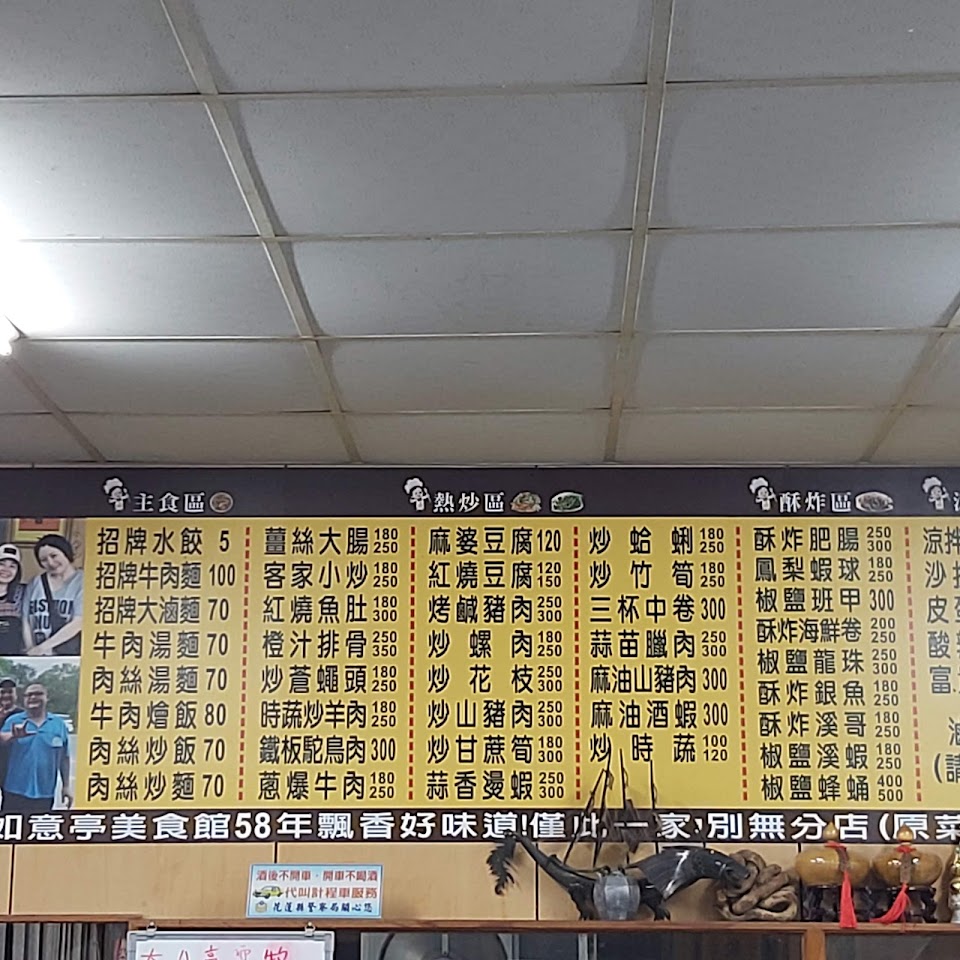 主食區
招牌水餃 5
招牌牛肉麵 100
招牌大滷麵 70
牛肉湯麵 70
肉絲湯麵 70
牛肉燴飯 80
肉絲炒飯 70
肉絲炒麵 70
熱炒區
薑絲大腸 180 250
客家小炒 180 250
紅燒魚肚 180 300
橙汁排骨 250 350
炒蒼蠅頭 180 250
時蔬炒羊肉 180 250
鐵板駝鳥肉 300
蔥爆牛肉 180 250
麻婆豆腐 120
紅燒豆腐 120 150
烤鹹豬肉 250 300
炒螺肉 180 250
炒花枝 250 300
炒山豬肉 250 300
炒甘蔗筍 180 300
蒜香溰蝦 250 300
炒蛤蜊 180 250
炒竹筍 180 250
三杯中卷 300
蒜苗臘肉 250 300
麻油山豬肉 300
麻油酒蝦 300
炒時蔬 100 120
酥炸區
酥炸肥腸 250 300
鳳梨蝦球 180 250
椒鹽班甲 300
酥炸海鮮卷 200 250
椒鹽龍珠 250 300
酥炸銀魚 180 250
酥炸溪哥 180 250
椒鹽溪蝦 180 250
椒鹽蜂蛹 400 500
涼拌
皮
酸
富
(請
如意亭美食館58年飄香好味道!僅此一家,別無分店(原菜
酒後不開車,開車不喝酒
代叫計程車服務
花蓮縣警察局關心您